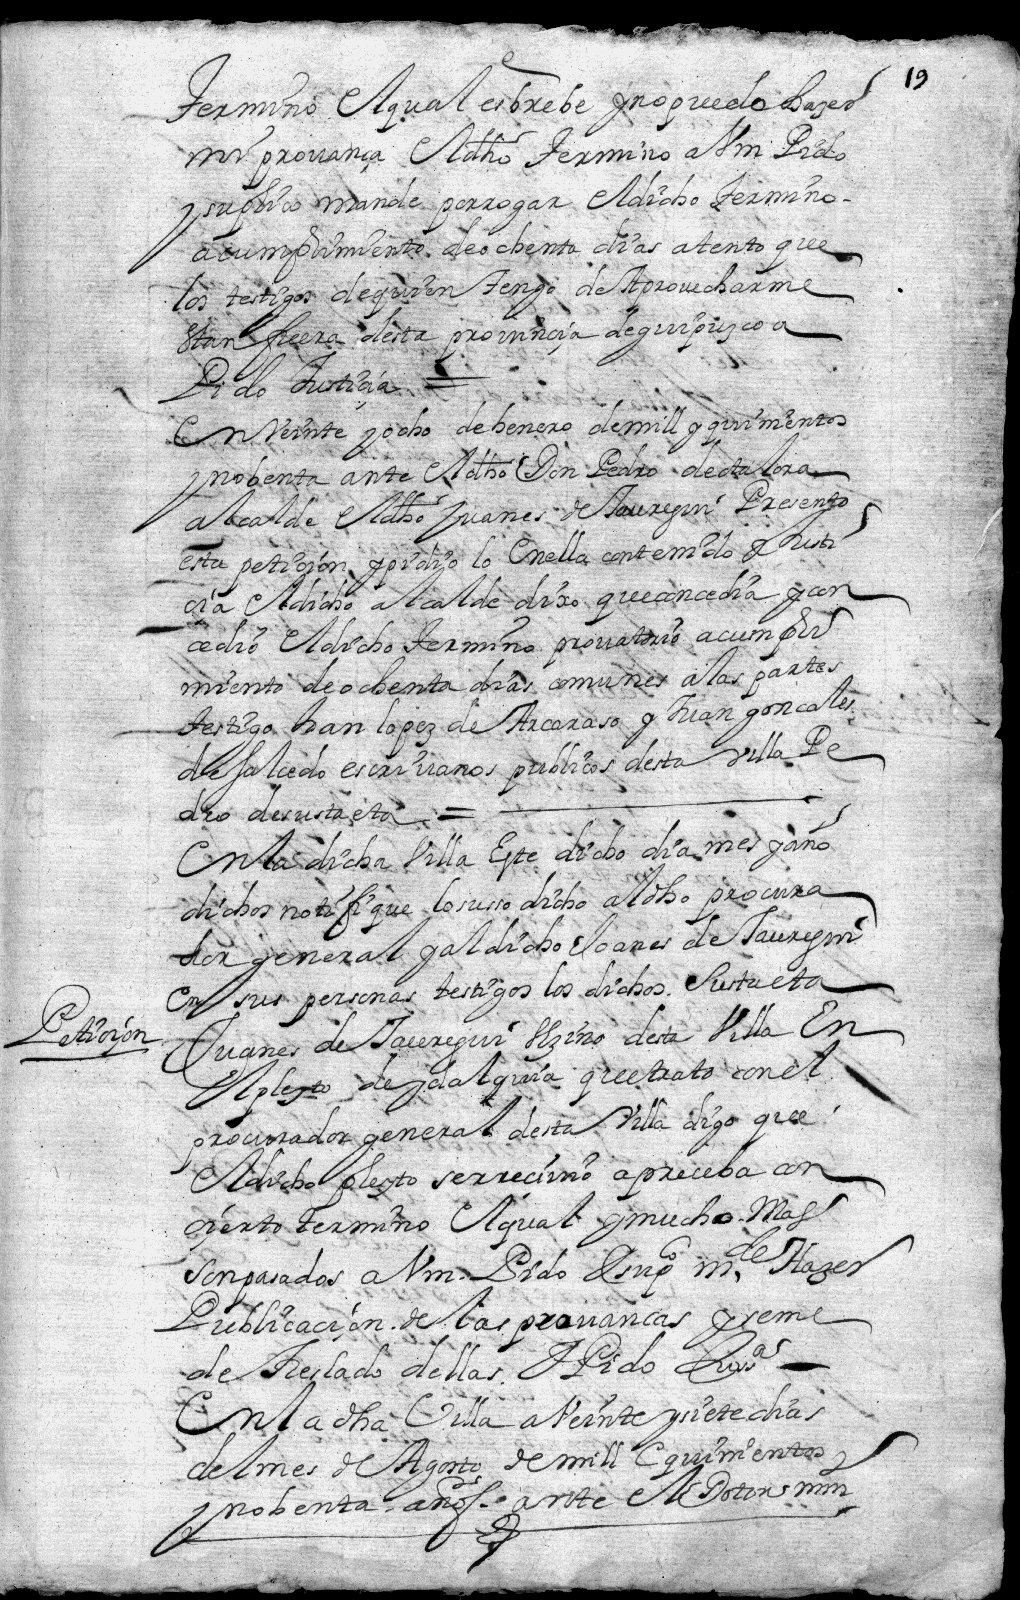 19
Termino El qual es brebe y no puedo hazer
mi provança El dho Termino a Vm Pido
y suplico mande porrogar El dicho termino
a cumplimiento de ochenta dias atento que
los testigos de quien Tengo de Aprovecharme
Estan fuera desta provinçia de guipuzcoa
Pido Justiçia =
En Veinte y ocho de henero de mill y quinientos
y nobenta ante El dho Don Pedro
alcalde El dho Juanes de Jauregui Presento
esta petiçion y pidio lo Enella contenido y Justi
çia El dicho alcalde dixo que concedia y con
cedio El dicho Termino provatorio a cumpli
miento de ochenta dias comunes a las partes
testigo han lopez de Arcaraso y Juan gonçales
de salcedo escrivanos publicos desta villa Pe
dro de sustaeta =
En la dicha Villa Este dicho dia mes y año
dichos notifique lo susso dicho al dho procura
dor general y al dicho Joanes de Jauregui
En sus personas testigos los dichos. Sustaeta
Petiçion
Juanes de Jauregui Vezino desta Villa En
El pleyto de ydalguia que trato con el
procurador general desta Villa digo que
El dicho pleyto se rrecivio a prueba con
çierto termino El qual y mucho Mas
son pasados a Vm. Pido & supco mde Hazer
Publicaçion de las provancas y se me
de Treslado dellas. I Pido
En la dha Villa a Veinte y siete dias
del mes de Agosto de mill E quinientos
y nobenta años. ante El min